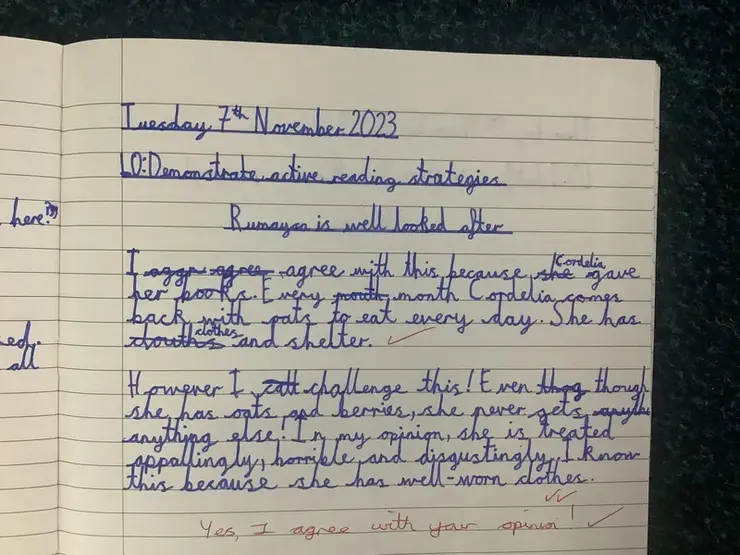 here?
ed.
all
Tuesday 7th November 2023
LO: Demonstrate active reading strategies
Rumaysa is well looked after
I aggr agree agree with this because she Cordelia gave
her books. Every mouth month Cordelia comes
back with oats to eat every day. She has
clouths clothes and shelter.
However I call challenge this! Even thog though
she has oats and berries, she never gets anythi
anything else! In my opinion, she is treated
appallingly, horrible and disgustingly. I know
this because she has well-worn clothes.
Yes, I agree with your opinion!